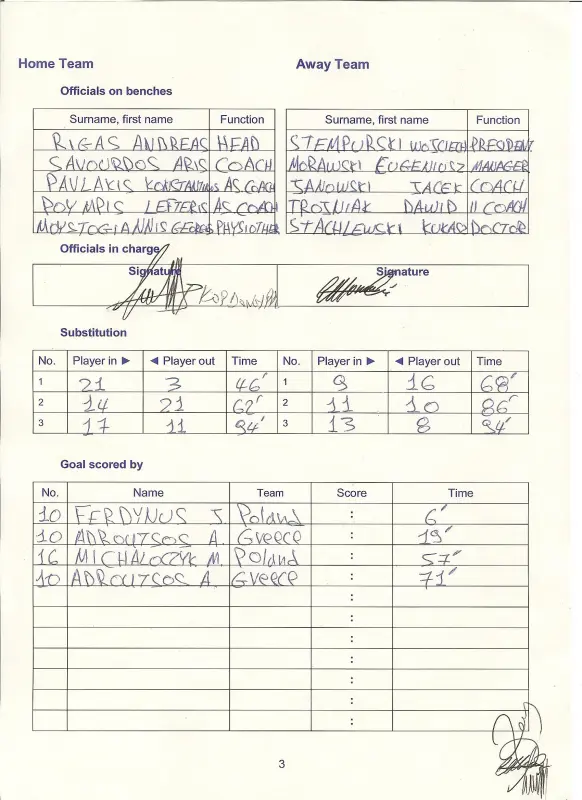 Home Team Away Team
Officials on benches
Surname, first name Function Surname, first name Function
RIGAS ANDREAS HEAD STEMPURSKI WOJCIECH PRESIDENT
SAVOURDOS ARIS COACH MORAWSKI EUGENIUSZ MANAGER
PAVLAKIS KONSTANTINOS AS.COACH JANOWSKI JACEK COACH
POYMPIS LEFTERIS AS.COACH TROJNIAK DAWID II COACH
MOYSTOGIANNIS GEORGS PHYSIOTHER STACHLEWSKI ŁUKASZ DOCTOR
Officials in charge
Signature Signature
Substitution
No. Player in ► ◄ Player out Time No. Player in ► ◄ Player out Time
1 21 3 46' 1 9 16 68'
2 14 21 62' 2 11 10 86'
3 17 11 94' 3 13 8 94'
Goal scored by
No. Name Team Score Time
10 FERDYNUS J. Poland : 6'
10 ADROUTSOS A. Greece : 19'
16 MICHALOCZYK M. Poland : 57'
10 ADROUTSOS A. Greece : 71'
:
:
:
:
:
:
:
3